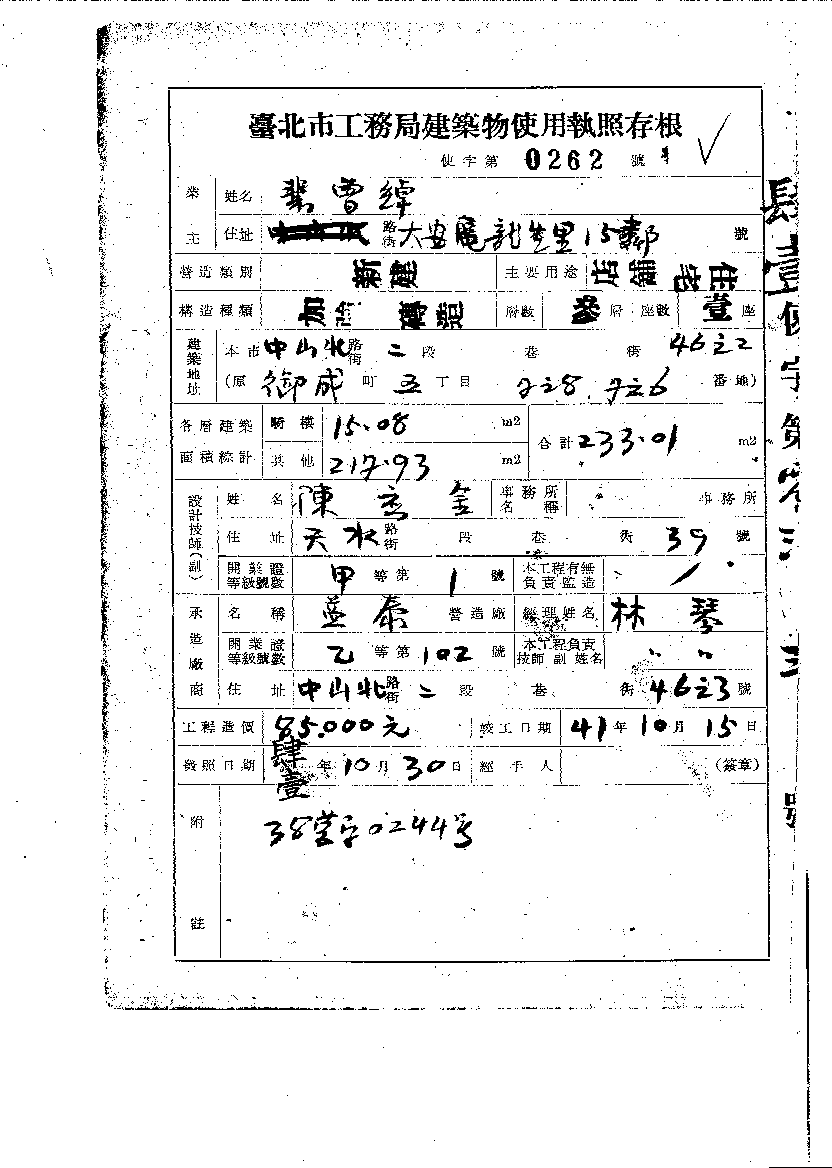 臺北市工務局建築物使用執照存根
使字第 0262 號
業主 姓名 曾綽
住址 路街 大安區龍生里15鄰 號
營造類別 新建 主要用途 店鋪 住宅
構造種類 加強磚造 層數 參層 座數 壹座
建築地址 本市中山北路街 二段 巷 街 46之2
(原 御成町五丁目 7之8.7之6 番地)
各層建築面積總計 騎樓 15.08 m2 合計 233.01 m2
其他 217.93 m2
設計技師(副) 姓名 陳 金 事務所名稱 事務所
住址 天水路街 段 巷 街 39 號
開業證等級號數 甲等第 1 號 本工程有無負責監造
承造廠商 名稱 益泰 營造廠 經理姓名 林琴
開業證等級號數 乙等第 102 號 本工程負責技師副姓名 〃 〃
住址 中山北路街 二段 巷 街 46之3 號
工程造價 85.000元 竣工日期 41年10月15日
發照日期 肆壹年10月30日 經手人 (簽章)
附註 38營字0244号
肆壹使字第零 號